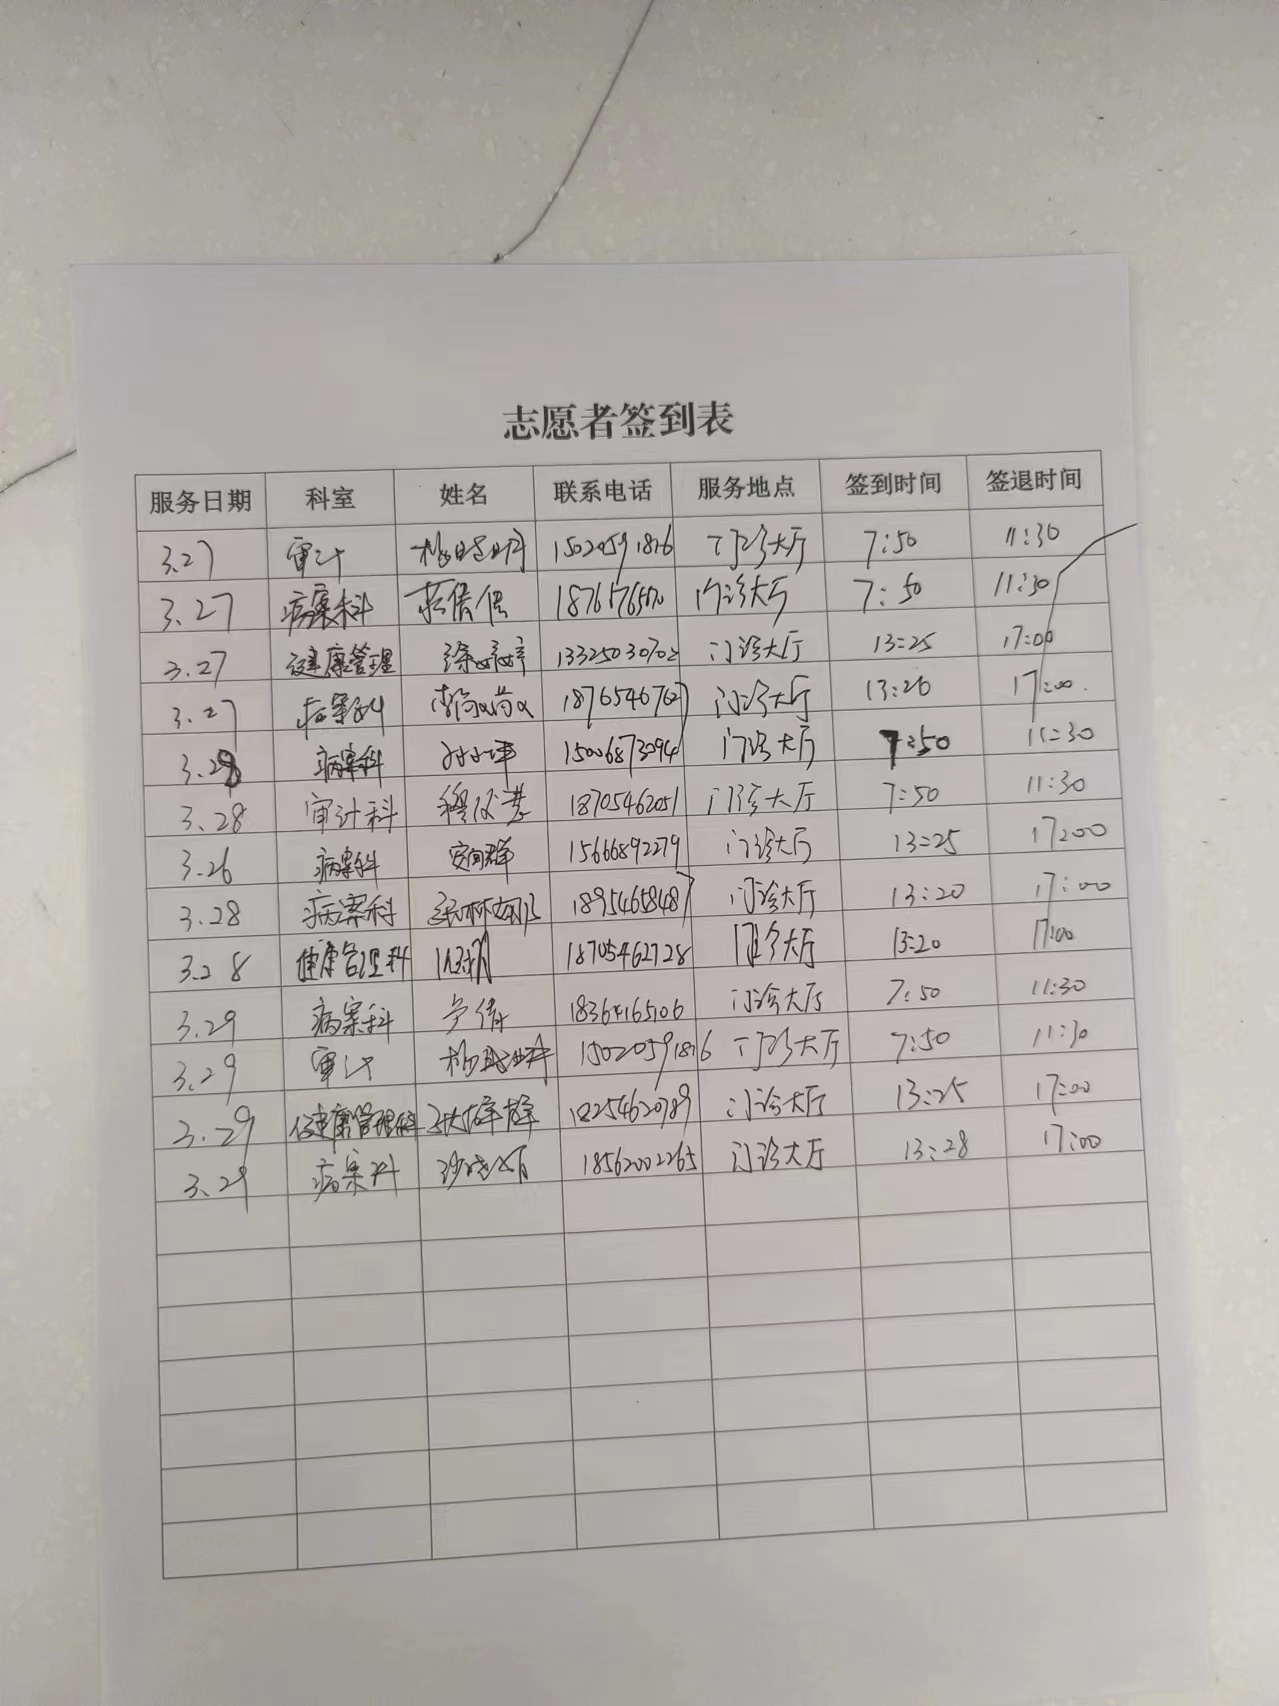 志愿者签到表
服务日期 科室 姓名 联系电话 服务地点 签到时间 签退时间
3.27 审计 15020591826 门诊大厅 7:50 11:30
3.27 病案科 门诊大厅 7:50 11:30
3.27 健康管理 13325030702 门诊大厅 13:25 17:00
3.27 病案科 18765467627 门诊大厅 13:20 17:00
3.28 病案科 孙小坤 15006873094 门诊大厅 7:50 11:30
3.28 审计科 18705462051 门诊大厅 7:50 11:30
3.26 病案科 15666892279 门诊大厅 13:25 17:00
3.28 病案科 18954658487 门诊大厅 13:20 17:00
3.28 健康管理科 18705462728 门诊大厅 13:20 17:00
3.29 病案科 18364165106 门诊大厅 7:50 11:30
3.29 审计 15020591826 门诊大厅 7:50 11:30
3.29 健康管理科 18254620789 门诊大厅 13:25 17:00
3.29 病案科 18562002265 门诊大厅 13:28 17:00